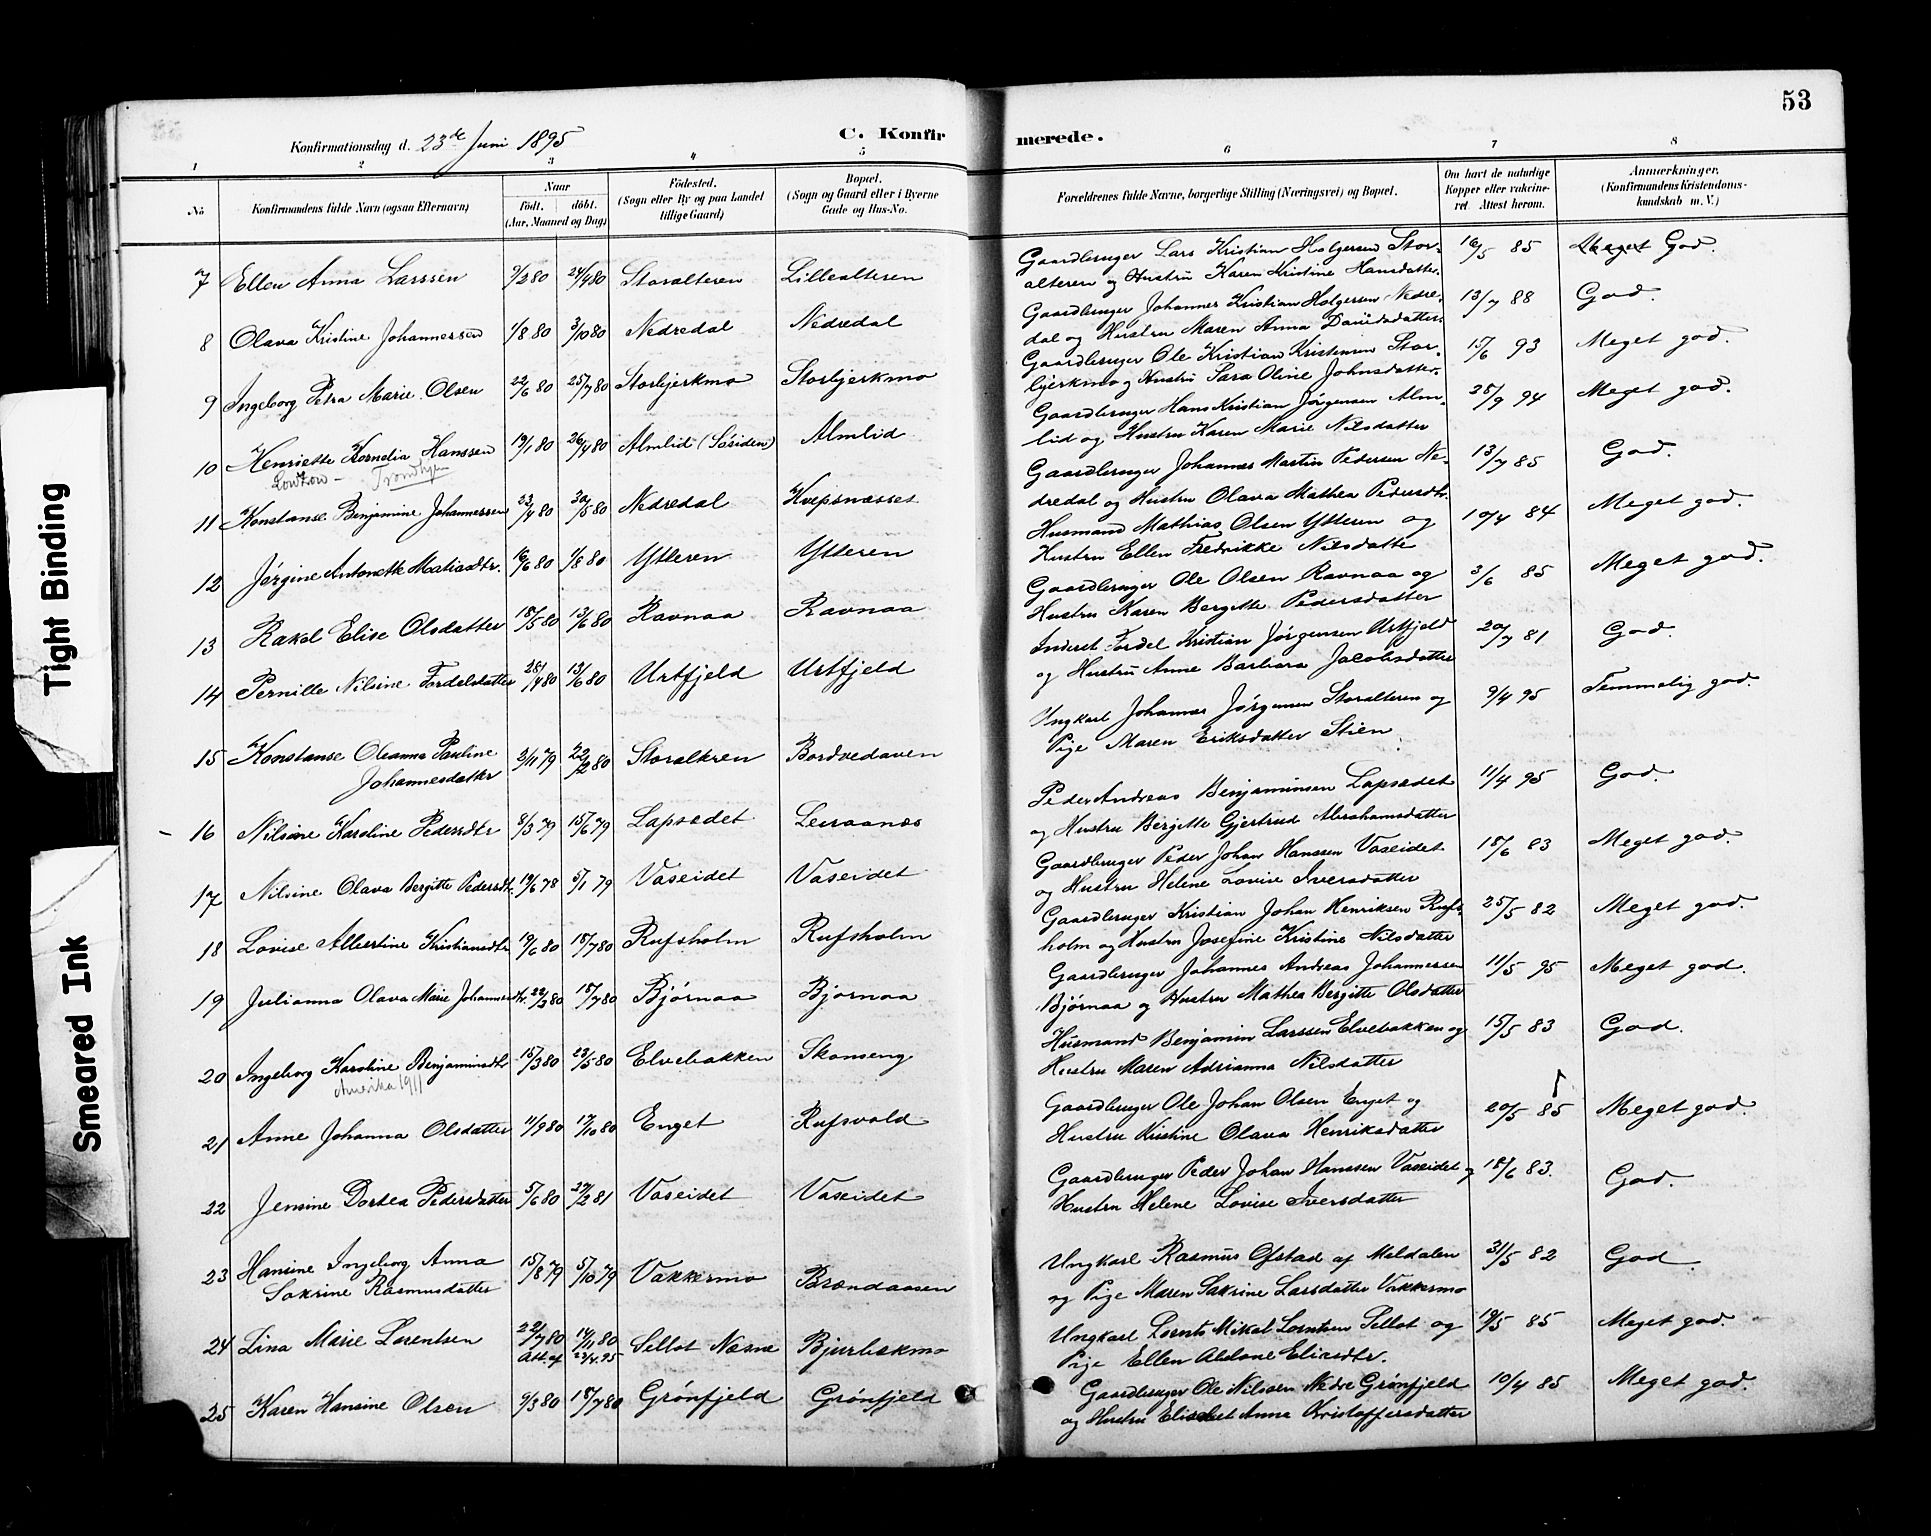 53
Konfirmationsdag d. 23de Juni 1895
C. Konfirmerede.
1 2 3 4 5 6 7 8
No
Konfirmandens fulde Navn (ogsaa Efternavn)
Naar
født. døbt.
(Aar, Maaned og Dag)
Fødested.
(Sogn eller By og paa Landet
tillige Gaard)
Bopæl.
(Sogn og Gaard eller i Byerne
Gade og Hus-No.
Forældrenes fulde Navne, borgerlige Stilling (Næringsvei) og Bopæl.
Om havt de naturlige
Kopper eller vaccine-
ret Attest herom.
Anmærkninger,
(Konfirmandens Kristendoms-
kundskab m. V.)
7 Ellen Anna Larssen 9/2 80 24/4 80 Storalteren Lillealteren
Gaardbruger Lars Kristian Holgersen Stor-
alteren og Hustru Karen Kristine Hansdatter. 16/5 85 Meget God.
8 Olava Kristine Johannessen 1/8 80 3/10 80 Nedredal Nedredal
Gaardbruger Johannes Kristian Holgersen Nedre-
dal og Hustru Maren Anna Davidsdatter. 13/7 88 God.
9 Ingeborg Petra Marie Olsen 22/6 80 25/7 80 Storbjerkmo Storbjerkmo
Gaardbruger Ole Kristian Kristensen Stor-
bjerkmo og Hustru Sara Oline Johnsdatter. 15/6 93 Meget god.
10 Henriette Kornelia Hanssen 19/1 80 26/4 80 Almlid (Søsiden) Almlid
Trondhjem
Gaardbruger Hans Kristian Jørgensen Alm-
lid og Hustru Karen Marie Nilsdatter 28/9 94 Meget god.
11 Konstanse Benjamine Johannessen 23/4 80 30/5 80 Nedredal Kvepsnæsset
Gaardbruger Johannes Martin Pedersen Ne-
dredal og Hustru Olava Mathea Pedersdtr. 13/7 85 God.
12 Jørgine Antonette Matiasdtr. 16/6 80 1/8 80 Ytteren Ytteren
Husmand Mathias Olsen Ytteren og
Hustru Ellen Fredrikke Nilsdatter 10/4 84 Meget god.
13 Rakel Elise Olsdatter 18/5 80 13/6 80 Ravnaa Ravnaa
Gaardbruger Ole Olsen Ravnaa og
Hustru Karen Bergitte Pedersdatter 3/6 85 Meget god.
14 Pernille Nilsine Fordelsdatter 28/4 80 13/6 80 Urtfjeld Urtfjeld
Inderst Fordel Kristian Jørgensen Urtfjeld
og Hustru Anne Barbara Jacobsdatter 20/7 81 God.
15 Konstanse Oleanna Pauline
Johannesdatter 2/11 79 22/2 80 Storalteren Bordvedaven
Ungkarl Johannes Jørgensen Storalteren og
Pige Maren Eriksdatter Stien 9/4 95 Temmelig god.
16 Nilsine Karoline Pedersdtr 8/3 79 15/6 79 Lapsædet Leiraanæs
Peder Andreas Benjaminsen Lapsædet
og Hustru Bergitte Gjertrud Abrahamsdatter 11/4 95 God.
17 Nilsine Olava Bergitte Pedersdtr. 19/6 78 5/1 79 Vaseidet Vaseidet
Gaardbruger Peder Johan Hanssen Vaseidet
og Hustru Helene Lovise Iversdatter 18/6 83 Meget god.
18 Lovise Albertine Kristiansdtr 19/6 80 18/7 80 Rufsholm Rufsholm
Gaardbruger Kristian Johan Henriksen Rufs-
holm og Hustru Josefine Kristine Nilsdatter 25/5 82 Meget god.
19 Julianna Olava Marie Johannesdtr. 22/2 80 18/7 80 Bjørnaa Bjørnaa
Gaardbruger Johannes Andreas Johannessen
Bjørnaa og Hustru Mathea Bergitte Olsdatter 11/5 95 Meget god.
20 Ingeborg Karoline Benjaminsdtr 15/3 80 23/5 80 Elvebakken Skonseng
Amerika 1911
Husmand Benjamin Larssen Elvebakken og
Hustru Maren Adrianna Nilsdatter 15/5 83 God.
21 Anne Johanna Olsdatter 11/9 80 17/10 80 Enget Rufsvold
Gaardbruger Ole Johan Olsen Enget og
Hustru Kristine Olava Henriksdatter 20/5 85 Meget god.
22 Jensine Dortea Pedersdatter 5/6 80 27/2 81 Vaseidet Vaseidet
Gaardbruger Peder Johan Hanssen Vaseidet og
Hustru Helene Lovise Iversdatter 18/6 83. God.
23 Hansine Ingeborg Anna
Sakrine Rasmusdatter 15/8 79 5/10 79 Vakkermo Brændaasen
Ungkarl Rasmus Ofstad af Meldalen
og Pige Maren Sakrine Larsdatter Vakkermo 31/5 82 God
24 Lina Marie Lorentsen 22/7 80 14/11 80 Sellot Næsne Bjurbækmo
Att. af 23/4 95
Ungkarl Lornts Mikal Lorntsen Sellot og
Pige Ellen Aldone Eliasdtr. 19/5 85 Meget god.
25 Karen Hansine Olsen 9/3 80 18/7 80 Grønfjeld Grønfjeld
Gaardbruger Ole Nilssen Nedre Grønfjeld
og Hustru Elisabet Anna Kristoffersdatter 19/4 85 Meget god.
Tight Binding
Smeared Ink